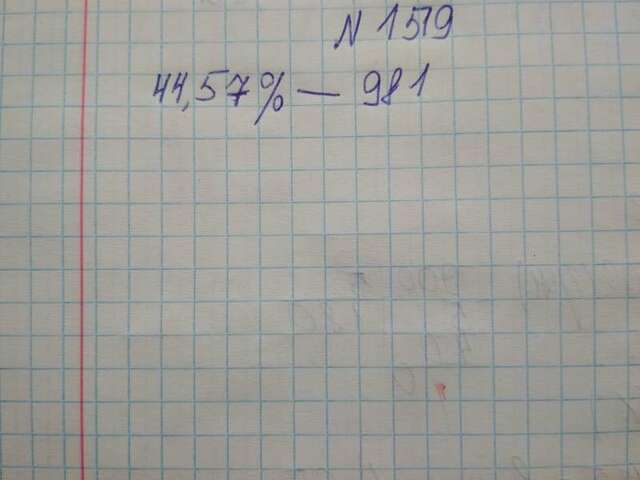 N 1519
44,57% — 981